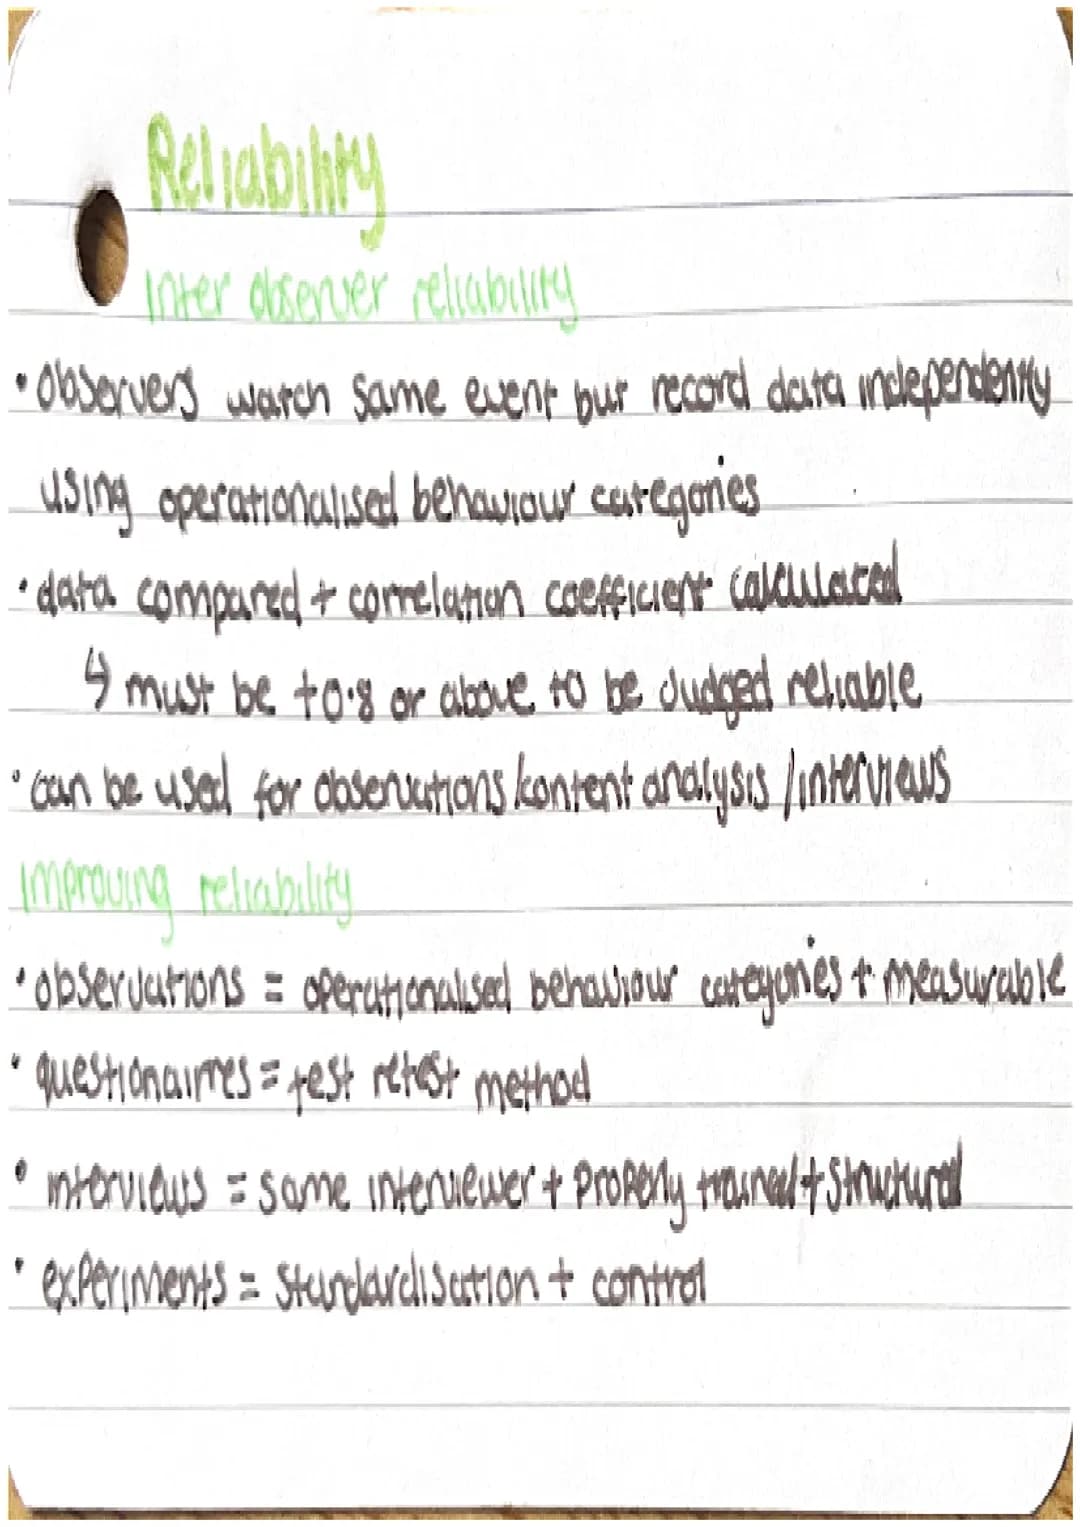 Reliability
Inter observer reliability
• Observers watch same event but record data independently
using operationalised behaviour categories
• data compared + correlation coefficient calculated
↳ must be +0.8 or above to be Judged reliable
• can be used for observations/content analysis/interviews
Improving reliability
• observations = operationalised behaviour categories + measurable
• questionairres = test retest method
• interviews = same interviewer + properly trained + structured
• experiments = standardisation + control